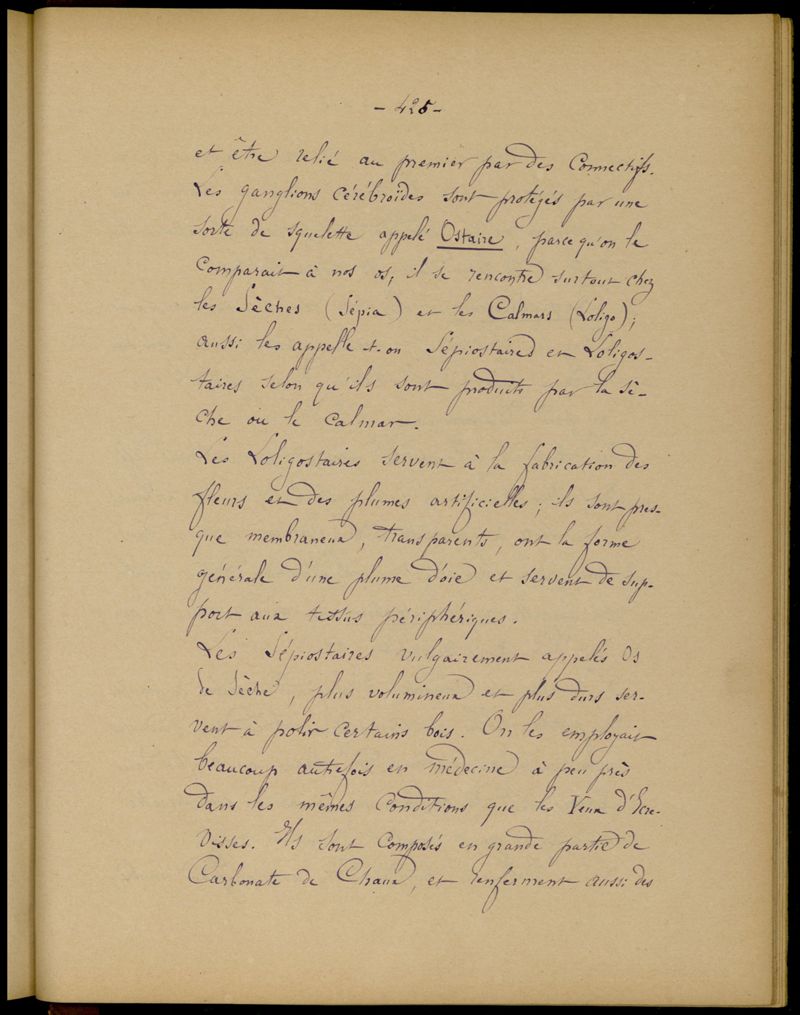 - 425 -
et être relié au premier par des Connectifs.
Les ganglions cérébroïdes sont protégés par une
sorte de squelette appelé Ostaire, parce qu'on le
comparait à nos os, il se rencontre surtout chez
les Sèches (Sépia) et les Calmars (Loligo);
aussi les appelle-t-on Sépiostaires et Loligos-
taires selon qu'ils sont produits par la sè-
che ou le calmar.
Les Loligostaires servent à la fabrication des
fleurs et des plumes artificielles; ils sont pres-
que membraneux, transparents, ont la forme
générale d'une plume d'oie et servent de sup-
port aux tissus périphériques.
Les Sépiostaires vulgairement appelés Os
de Sèche, plus volumineux et plus durs ser-
vent à polir certains bois. On les employait
beaucoup autrefois en médecine à peu près
dans les mêmes conditions que les Yeux d'Ecre-
visses. Ils sont composés en grande partie de
Carbonate de Chaux, et renferment aussi des